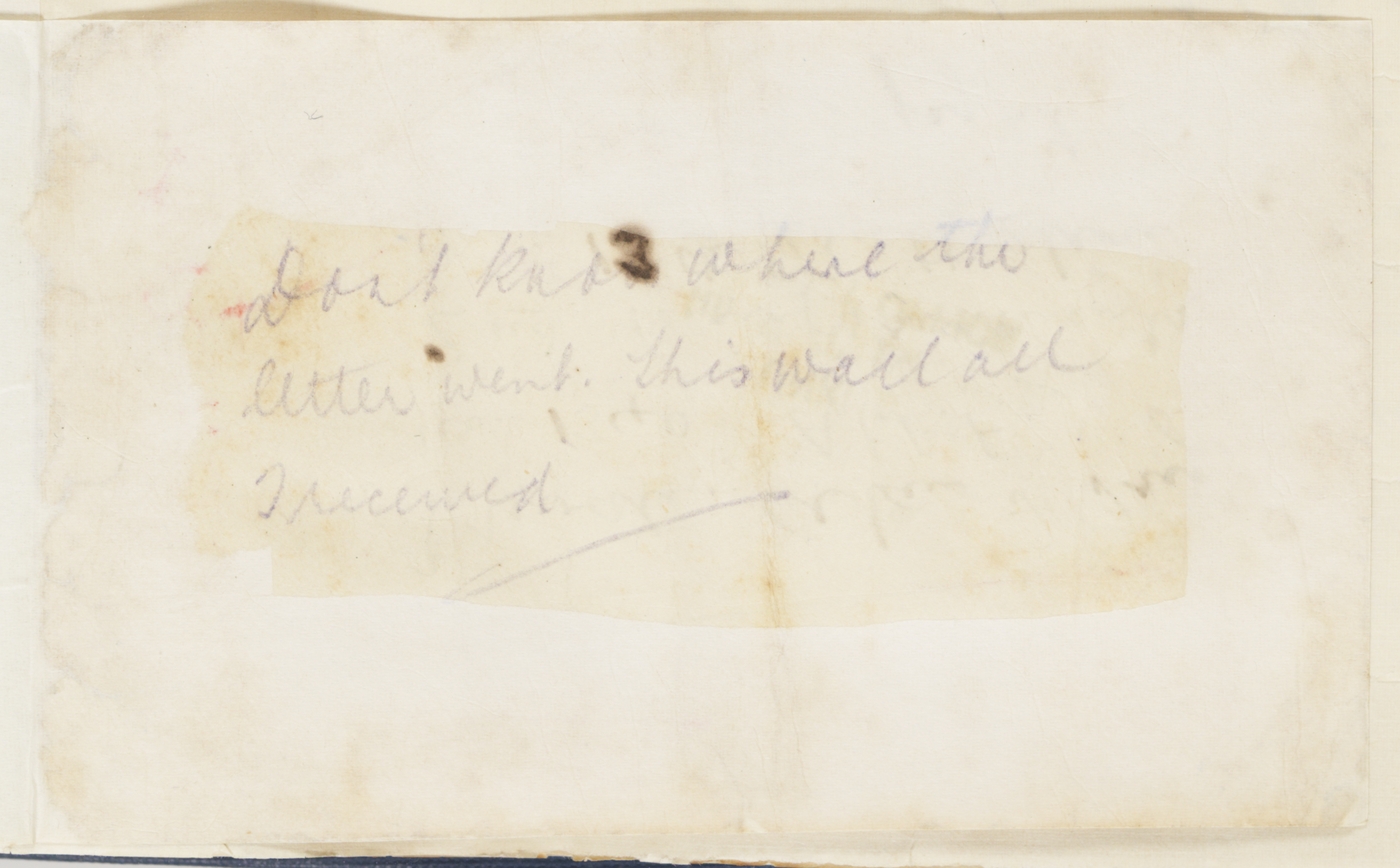 Don't know where the
letter went. This was all
I received